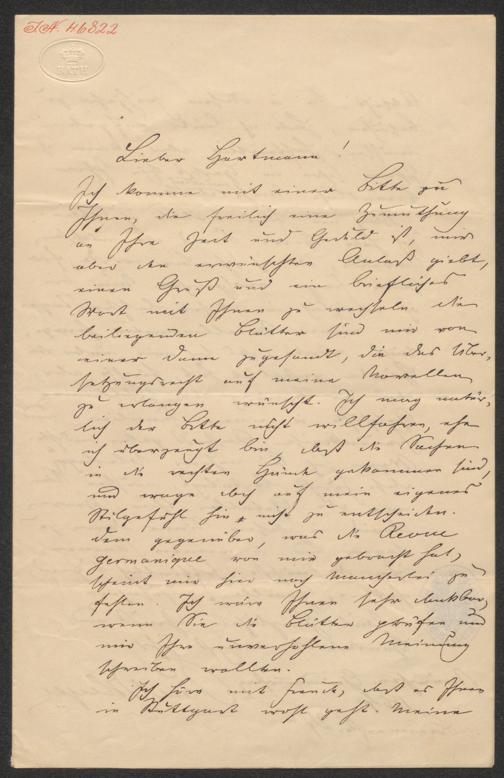 I.N. 46822
BATH
Lieber Hartmann!
Ich komme mit einer Bitte zu
Ihnen, die freilich eine Zumuthung
an Ihre Zeit und Geduld ist, mir
aber den erwünschten Anlaß giebt,
einen Gruß und ein briefliches
Wort mit Ihnen zu wechseln. Die
beiliegenden Blätter sind mir von
einer Dame zugesandt, die das Über-
setzungsrecht auf meine Novellen
zu erlangen wünscht. Ich mag natür-
lich der Bitte nicht willfahren, ehe
ich überzeugt bin, daß die Sachen
in die rechten Hände gekommen sind,
und wage doch auf mein eigenes
Stilgefühl hin nicht zu entscheiden.
Dem gegenüber, was die Revue
germanique von mir gebracht hat,
scheint mir hier noch Mancherlei zu
fehlen. Ich wäre Ihnen sehr dankbar,
wenn Sie die Blätter prüfen und
mir Ihre unverhohlene Meinung
schreiben wollten.
Ich höre mit Freude, daß es Ihnen
in Stuttgart wohl geht. Meine